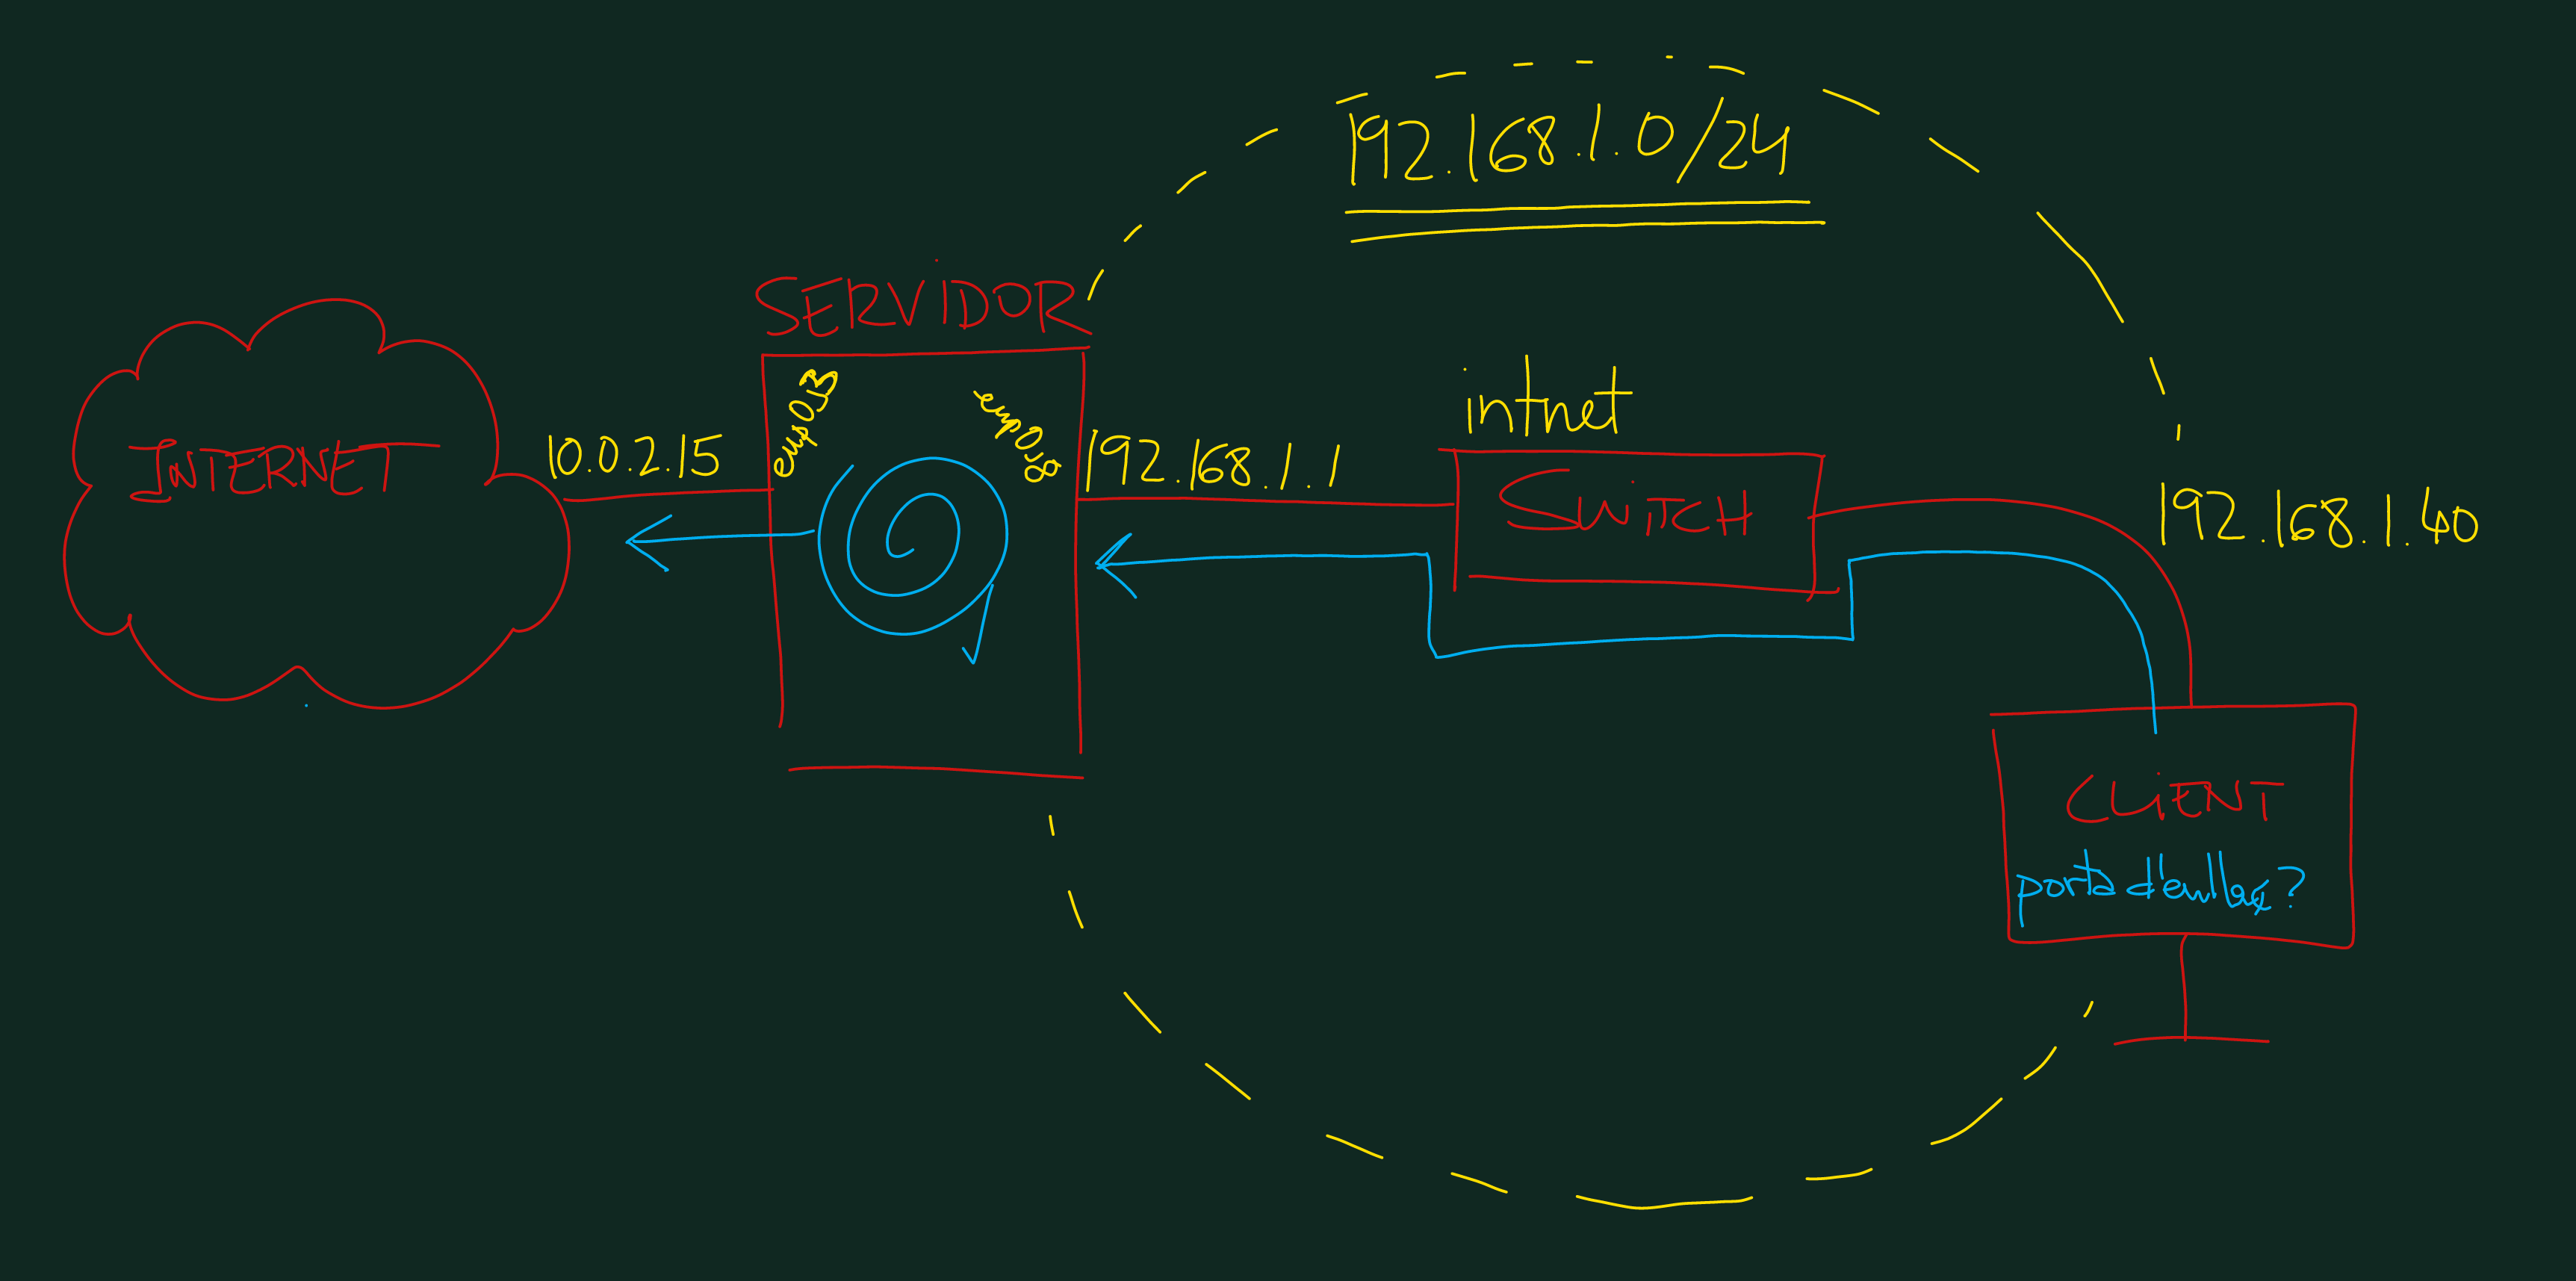 192.168.1.0/24
SERVIDOR
intnet
INTERNET
10.0.2.15
enp0s3
enp0s8
192.168.1.1
SWiTCH
192.168.1.40
CLiENT
porta d'enllaç?